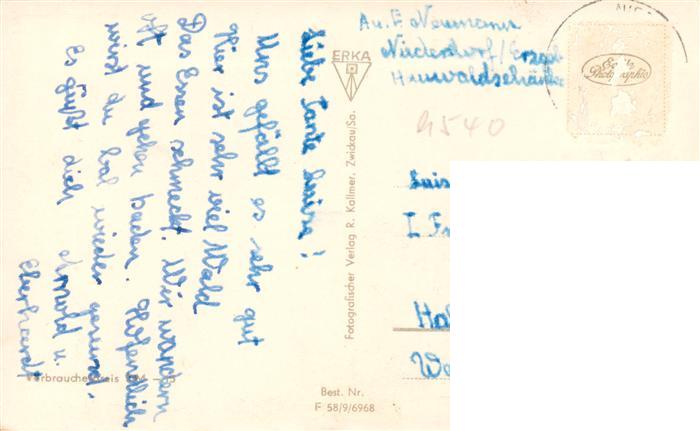 Liebe Tante Luise!
Uns gefällt es sehr gut
Hier ist sehr viel Wald
Das Essen schmeckt. Wir wandern
oft und gehen baden. Hofendlich
wirst du bal wieder gesund.
Es grüßt dich Arnold u.
Eberhardt
ERKA
Fotografischer Verlag R. Kallmer, Zwickau/Sa.
Best. Nr.
F 58/9/6968
Verbraucherpreis
Neumann
Niederdorf/Erzgeb
4540
Echte
Photographie
Luis
I. Fr
Ha
We